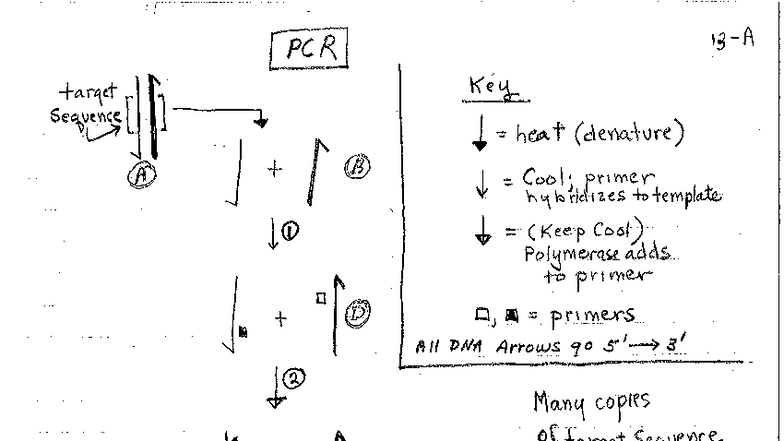 PCR
13-A
target
Sequence
A
B
1
D
2
Key
= heat (denature)
= Cool; primer
hybridizes to template
= (Keep Cool)
Polymerase adds
to primer
, = primers
All DNA Arrows go 5' → 3'
Many copies
of target Sequence